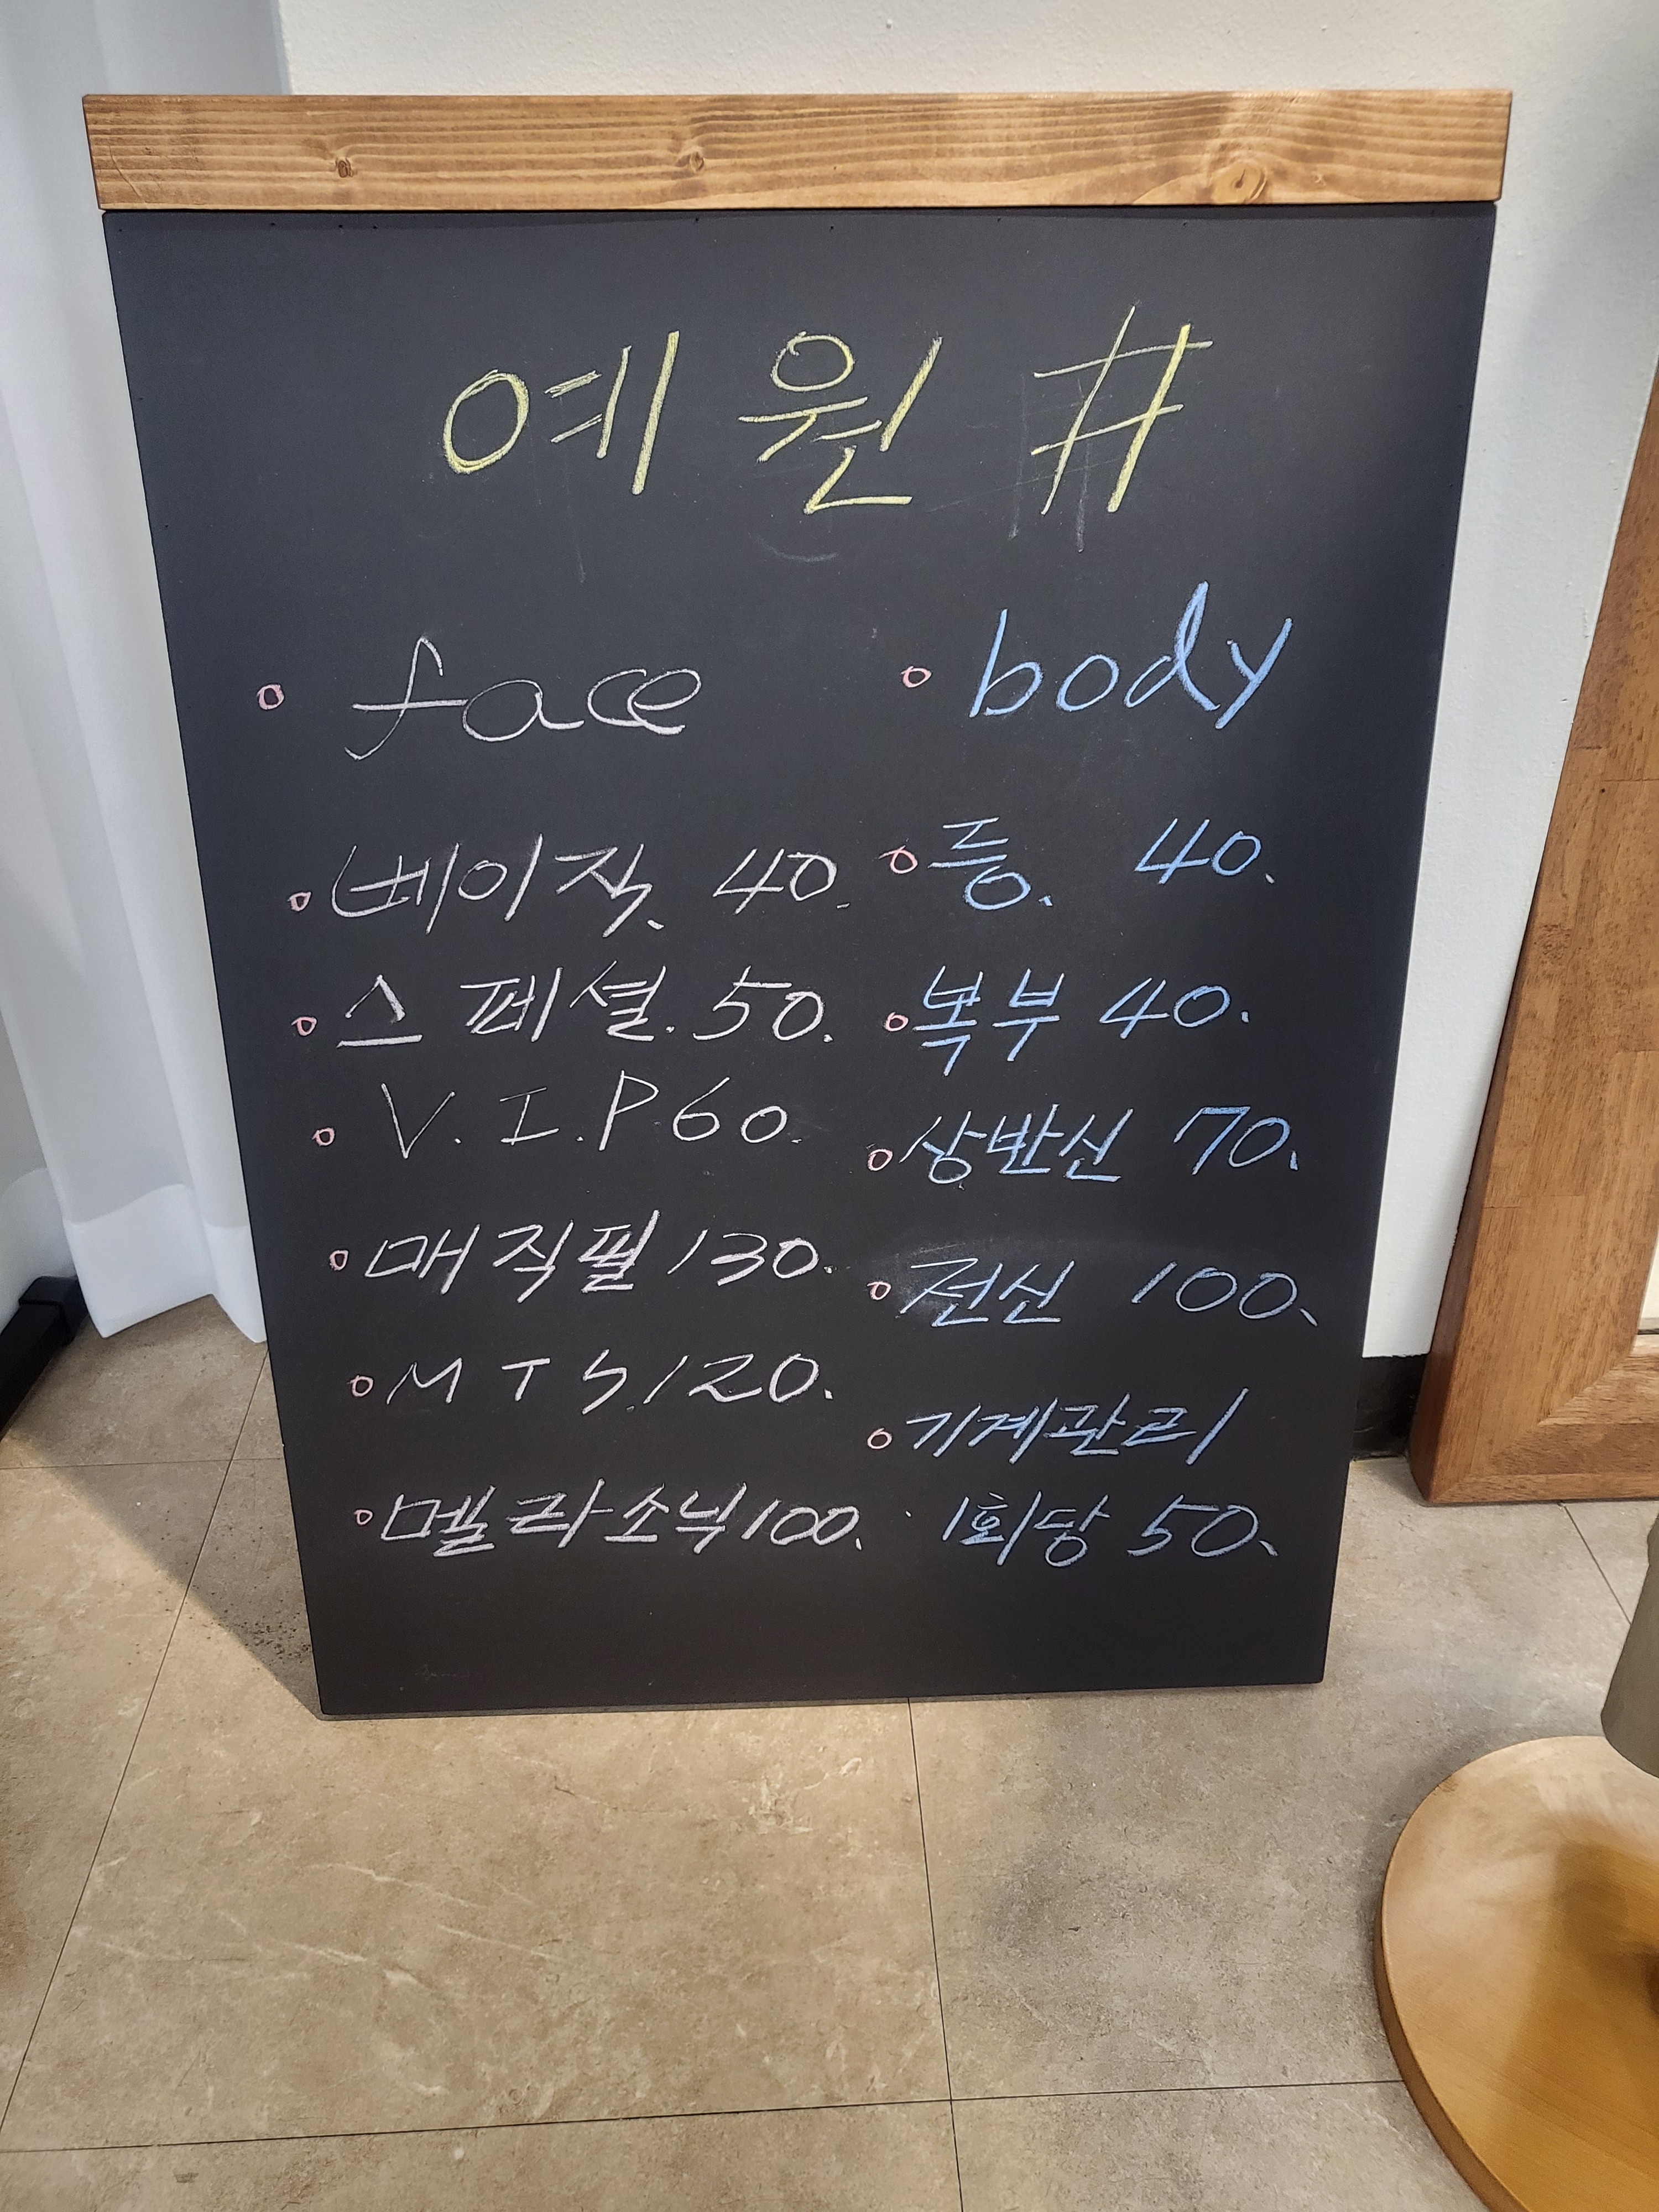 예원 #
face
베이직. 40.
스페셜. 50.
V.I.P 60.
매직필 130.
MTS. 120.
멜라소닉 100.
body
등. 40.
복부 40.
상반신 70.
전신 100.
기계관리
1회당 50.